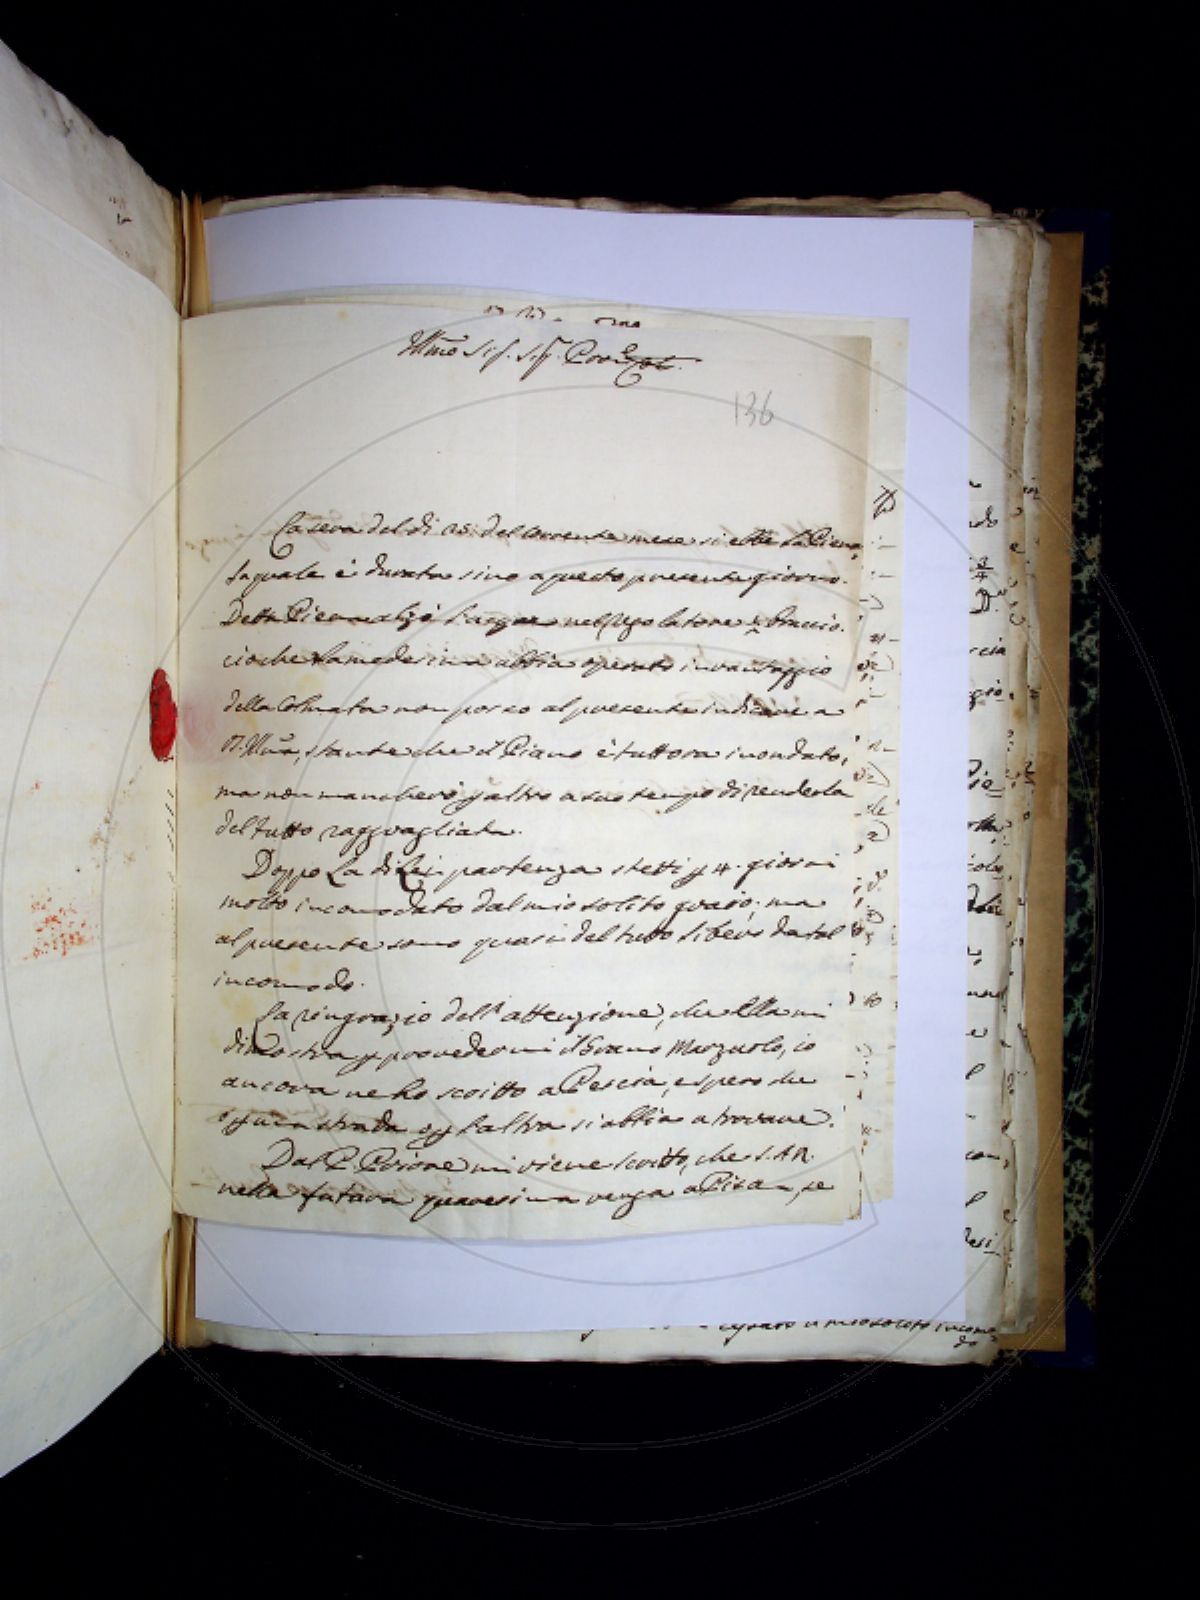 Illmo Sig. Sig. Pron
136
La sera del dì 25: del corrente mese si ebbe la Piena
la quale è durata sino a questo presente giorno.
Detta Piena alzò l'acque nel Regolatore braccio.
cioche la medesima abbia operato in vantaggio
della Colmata non posso al presente indicare a
V. Illma, stante che il Piano è tuttora inondato,
ma non mancherò p altro a suo tempo di renderla
del tutto ragguagliata.
Doppo La di Lei partenza stetti p 4. giorni
molto incomodato dal mio solito guaio: ma
al presente sono quasi del tutto libero da tal
incomodo.
La ringrazio dell'attenzione, che Ella mi
dimostra p provedermi il Grano Marzuolo, io
ancora ne ho scritto a Pescia, e spero che
o p una strada o p l'altra si abbia a trovare.
Dal P. Priore mi viene scritto, che S.A.R.
nella futura quaresima venga a Pisa, se